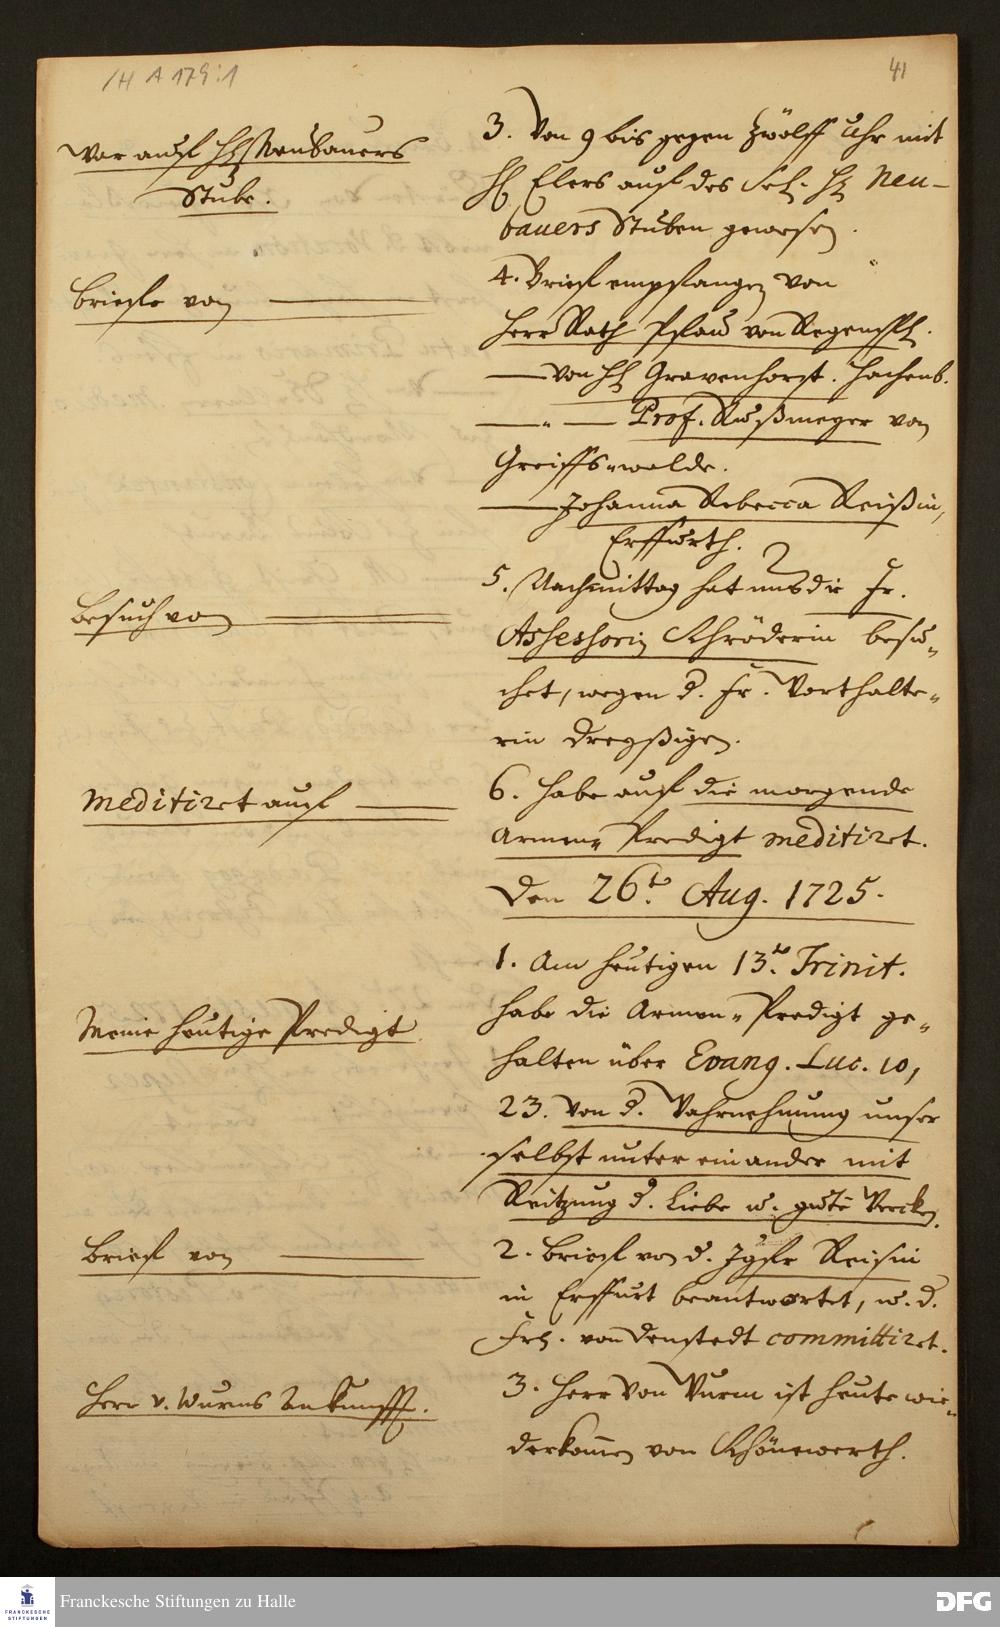 /H A 179:1
41
War auff H. Neubauers
Stube.
3. Von 9 bis gegen zwölff Uhr mit
H. Elers auf des Sel. H. Neu-
bauers Stuben gewesen.
Brieffe von
4. Brieff empfangen von
Herr Rath Pfau von Regensp.
— von H. Gravenhorst. Hachenb.
— " — Prof. Rußmeyer von
Greiffs-walde.
— Johanna Rebecca Reißin,
Erffurth.
Besuch von
5. Nachmittag hat uns die Fr.
Assessorin Schröderin besu-
chet, wegen d. Fr. Vorthalte-
rin Dreyßigen.
meditiret auff
6. Habe auff die morgende
Armen-Predigt meditiret.
Den 26t. Aug. 1725.
1. Am heutigen 13t. Trinit.
Meine heutige Predigt
habe die Armen-Predigt ge-
halten über Evang. Luc. 10,
23. Von d. Wahrnehmung unser
selbst unter einander mit
Reitzung d. Liebe u. gute Wercke.
Brieff von
2. Brieff von d. Jgfr Reisin
in Erffurt beantwortet, u. d.
Frl. von Denstedt committiret.
Herr v. Wurms Ankunfft.
3. Herr Von Wurm ist heute wie-
derkommen von Schönewerth.
FRANCKESCHE
STIFTUNGEN
Franckesche Stiftungen zu Halle
DFG